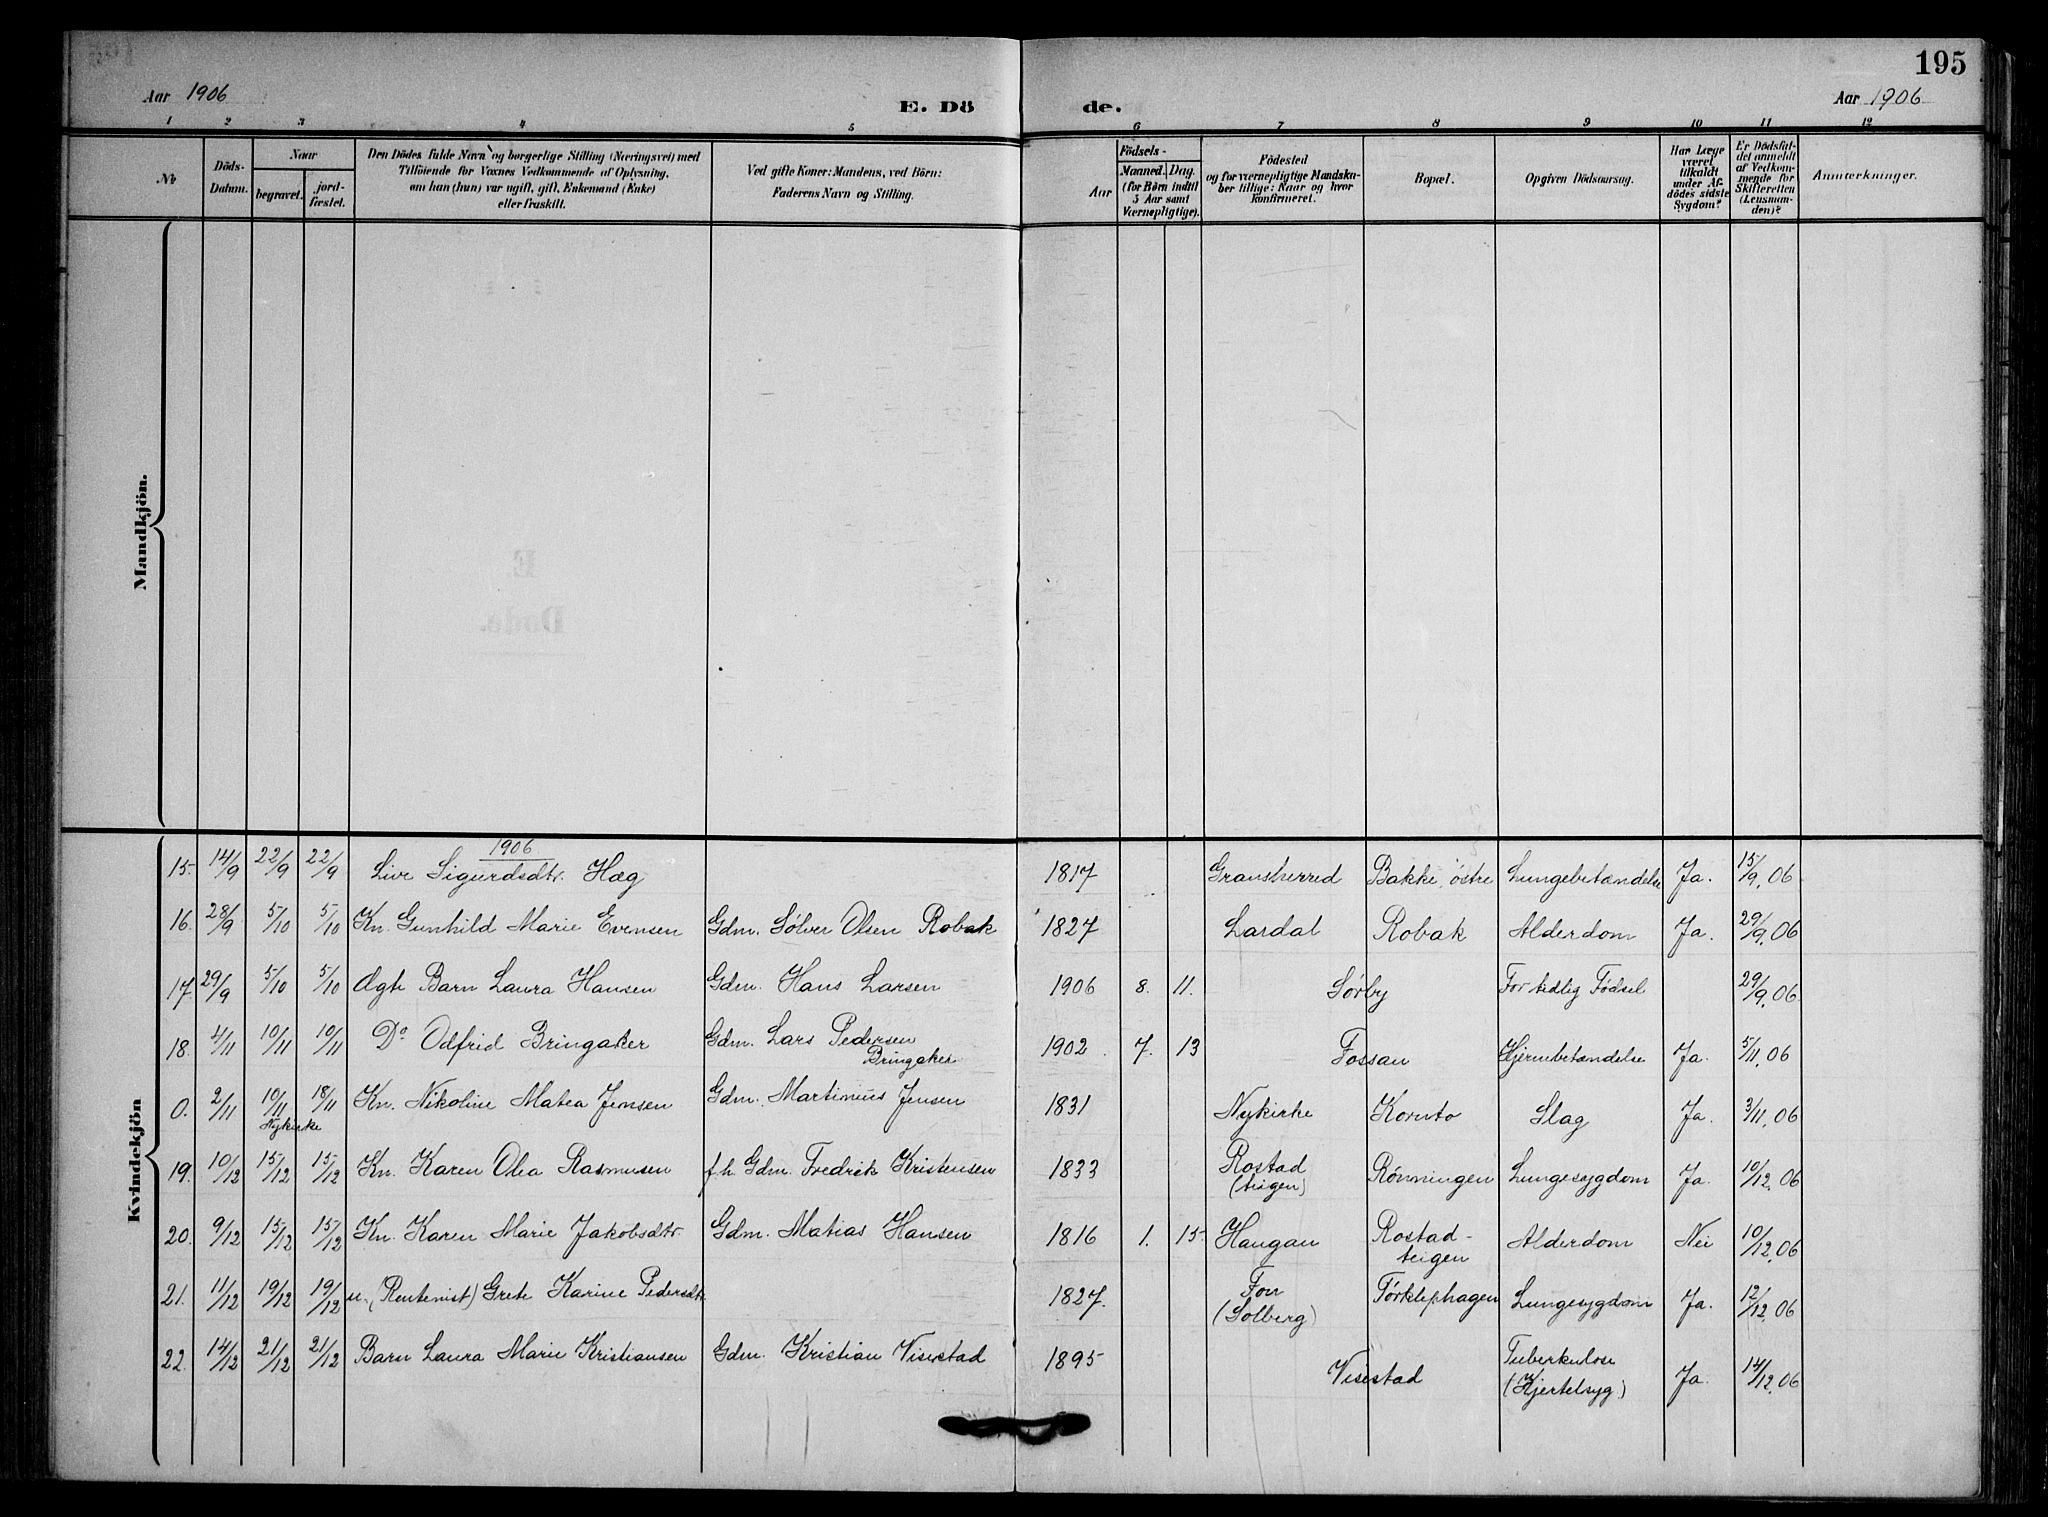 Aar 1906
E. Dö
de.
Aar 1906
195
1 2 3 4 5 6 7 8 9 10 11 12
No
Döds-
Datum.
Naar
begravet.
jord-
fæstet.
Den Dödes fulde Navn og borgerlige Stilling (Næringsvei) med
Tilföiende for Voxnes Vedkommende af Oplysning,
om han (hun) var ugift, gift, Enkemand (Enke)
eller fraskilt.
Ved gifte Koner: Mandens, ved Börn:
Faderens Navn og Stilling.
Födsels-
Aar
Maaned. Dag.
(for Börn indtil
5 Aar samt
Værnepligtige).
Födested
og for værnepligtige Mandska-
ber tillige: Naar og hvor
konfirmeret.
Bopæl.
Opgiven Dödsaarsag.
Har Læge
været
tilkaldt
under Af-
dödes sidste
Sygdom?
Er Dödsfal-
det anmeldt
af Vedkom-
mende for
Skifteretten
(Lensman-
den)?
Anmærkninger.
Mandkjön.
Kvindekjön
1906
15. 14/9 22/9 22/9 Live Sigurdsdtr. Hæg 1817 Gransherred Bakke, østre Lungebetændelse Ja. 15/9.06
16. 28/9 5/10 5/10 Kn. Gunhild Marie Evensen Gdm. Sølver Olsen Robak 1827 Lardal Robak Alderdom Ja. 29/9.06
17. 29/9 5/10 5/10 Ægte Barn Laura Hansen Gdm. Hans Larsen 1906 8. 11. Sørby For tidlig Fødsel 29/9.06
18. 4/11 10/11 10/11 Do Odfrid Bringaker Gdm. Lars Pedersen
Bringaker 1902 7. 13 Fossan Hjernebetændelse Ja. 5/11.06
0. 2/11 10/11 18/11 Kn. Nikoline Matea Jensen Gdm. Martinius Jensen 1831 Nykirke Kornto Slag Ja. 3/11.06
Nykirke
19. 10/12 15/12 15/12 Kn. Karen Olea Rasmusen f.h. Gdm. Fredrik Kristensen 1833 Rostad
(teigen) Rønningen Lungesygdom Ja. 10/12.06
20. 9/12 15/12 15/12 Kn. Karen Marie Jakobsdtr. Gdm. Matias Hansen 1816 1. 15. Haugan Rostad-
teigen Alderdom Nei 10/12.06
21. 11/12 19/12 19/12 u. (Rentenist) Grete Karine Pedersdtr. 1827. Fon
(Solberg) Tørklephagen Lungesygdom Ja. 12/12.06
22. 14/12 21/12 21/12 Barn Laura Marie Kristiansen Gdm. Kristian Visestad 1895 Visestad Tuberkulose
(Kjertelsyg) Ja. 14/12.06